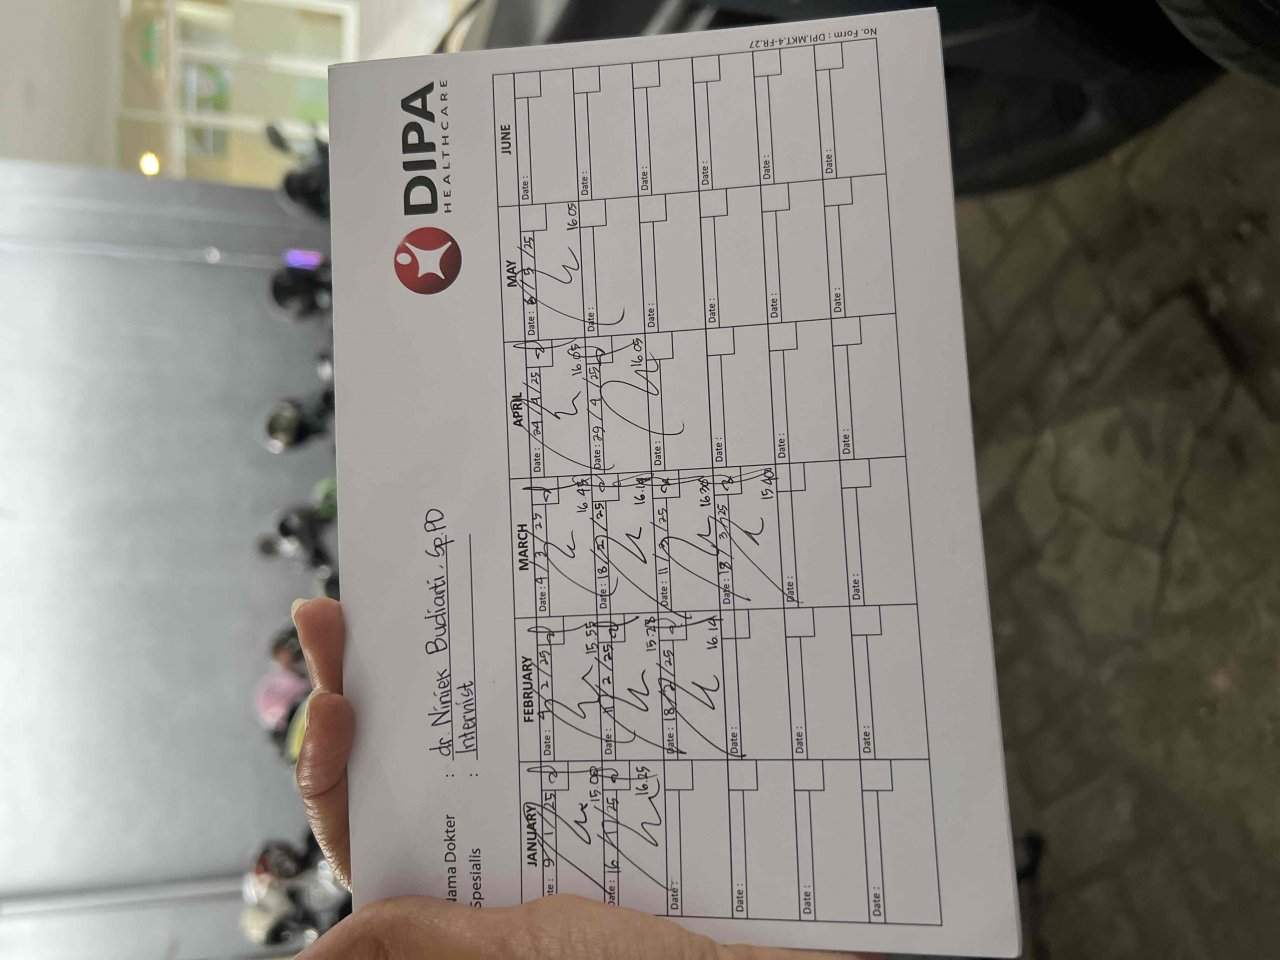 DIPA
HEALTHCARE
Nama Dokter : dr. Niniek Budiarti, Sp.PD
Spesialis : Internist
JANUARY FEBRUARY MARCH APRIL MAY JUNE
Date : 9/1/25 Date : Date : 4/3/25 Date : 24/4/25 Date : 6/5/25 Date :
15.08 15.55 16.45 16.05 16.05
Date : 16/1/25 Date : 11/2/25 Date : Date : 29/4/25 Date : Date :
16.25 15.28 16.19 16.05
Date : Date : 18/2/25 Date : 11/3/25 Date : Date : Date :
16.19 16.20
Date : Date : Date : 18/3/25 Date : Date : Date :
15.40
Date : Date : Date : Date : Date : Date :
Date : Date : Date : Date : Date : Date :
No. Form : DPI.MKT.4-FR.27